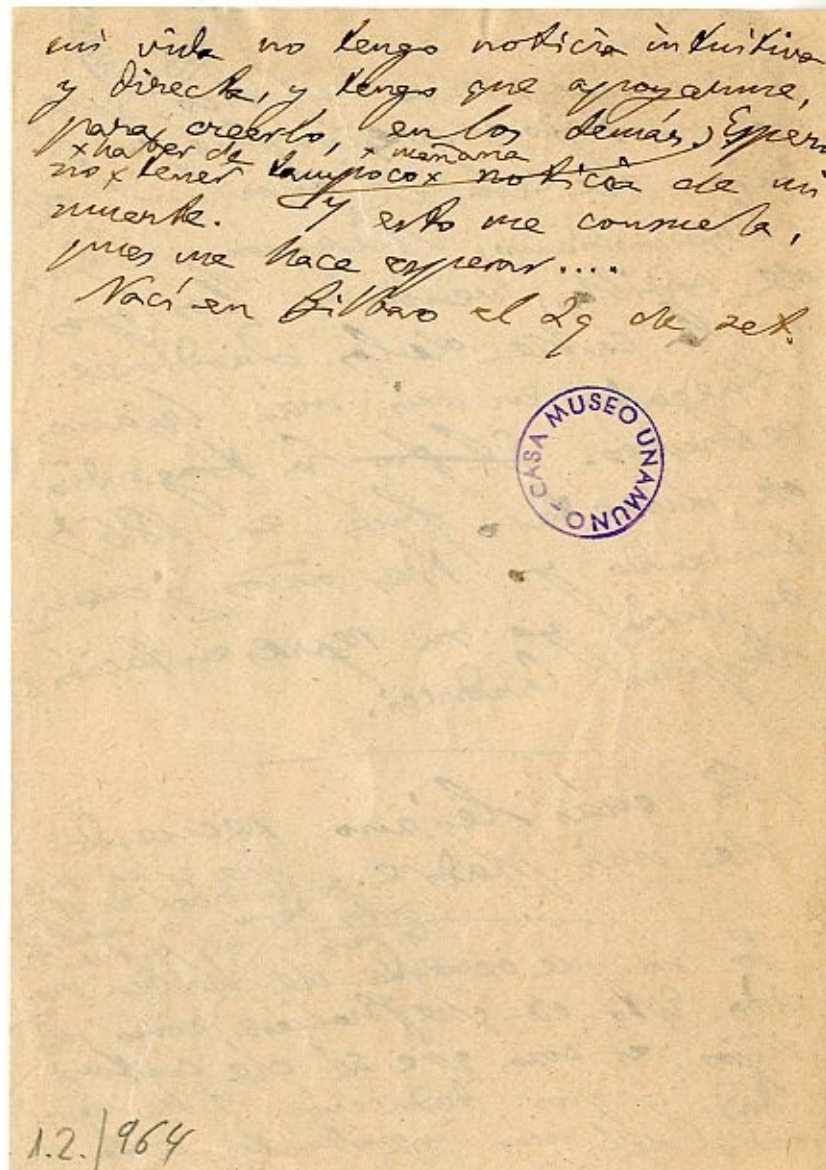 mi vida no tengo noticia intuitiva
y directa, y tengo que apoyarme,
para creerlo, en los demás, Espero
× haber de × mañana
no × tener tampoco × noticia de mi
muerte. Y esto me consuela,
pues me hace esperar....
Nací en Bilbao el 29 de set.
CASA MUSEO UNAMUNO
1.2./964